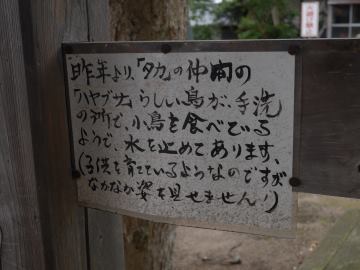 昨年より、「タカ」の仲間の
「ハヤブサ」らしい鳥が、手洗
の所で、小鳥を食べている
ようで、水を止めてあります、
(子供を育てているようなのですが
なかなか姿を見せません!)